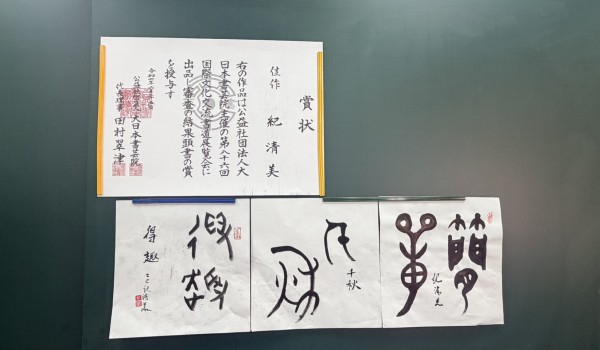 賞状
佳作 紀清美
右の作品は公益社団法人大
日本書芸院主催の第八十六回
国際文化交流書道展覧会に
出品し審査の結果頭書の賞
を授与す
公益社団法人大日本書芸院
代表理事 田村翠津
簡
單
紀清美
千
秋
千秋
得趣
得趣
乙巳紀清美